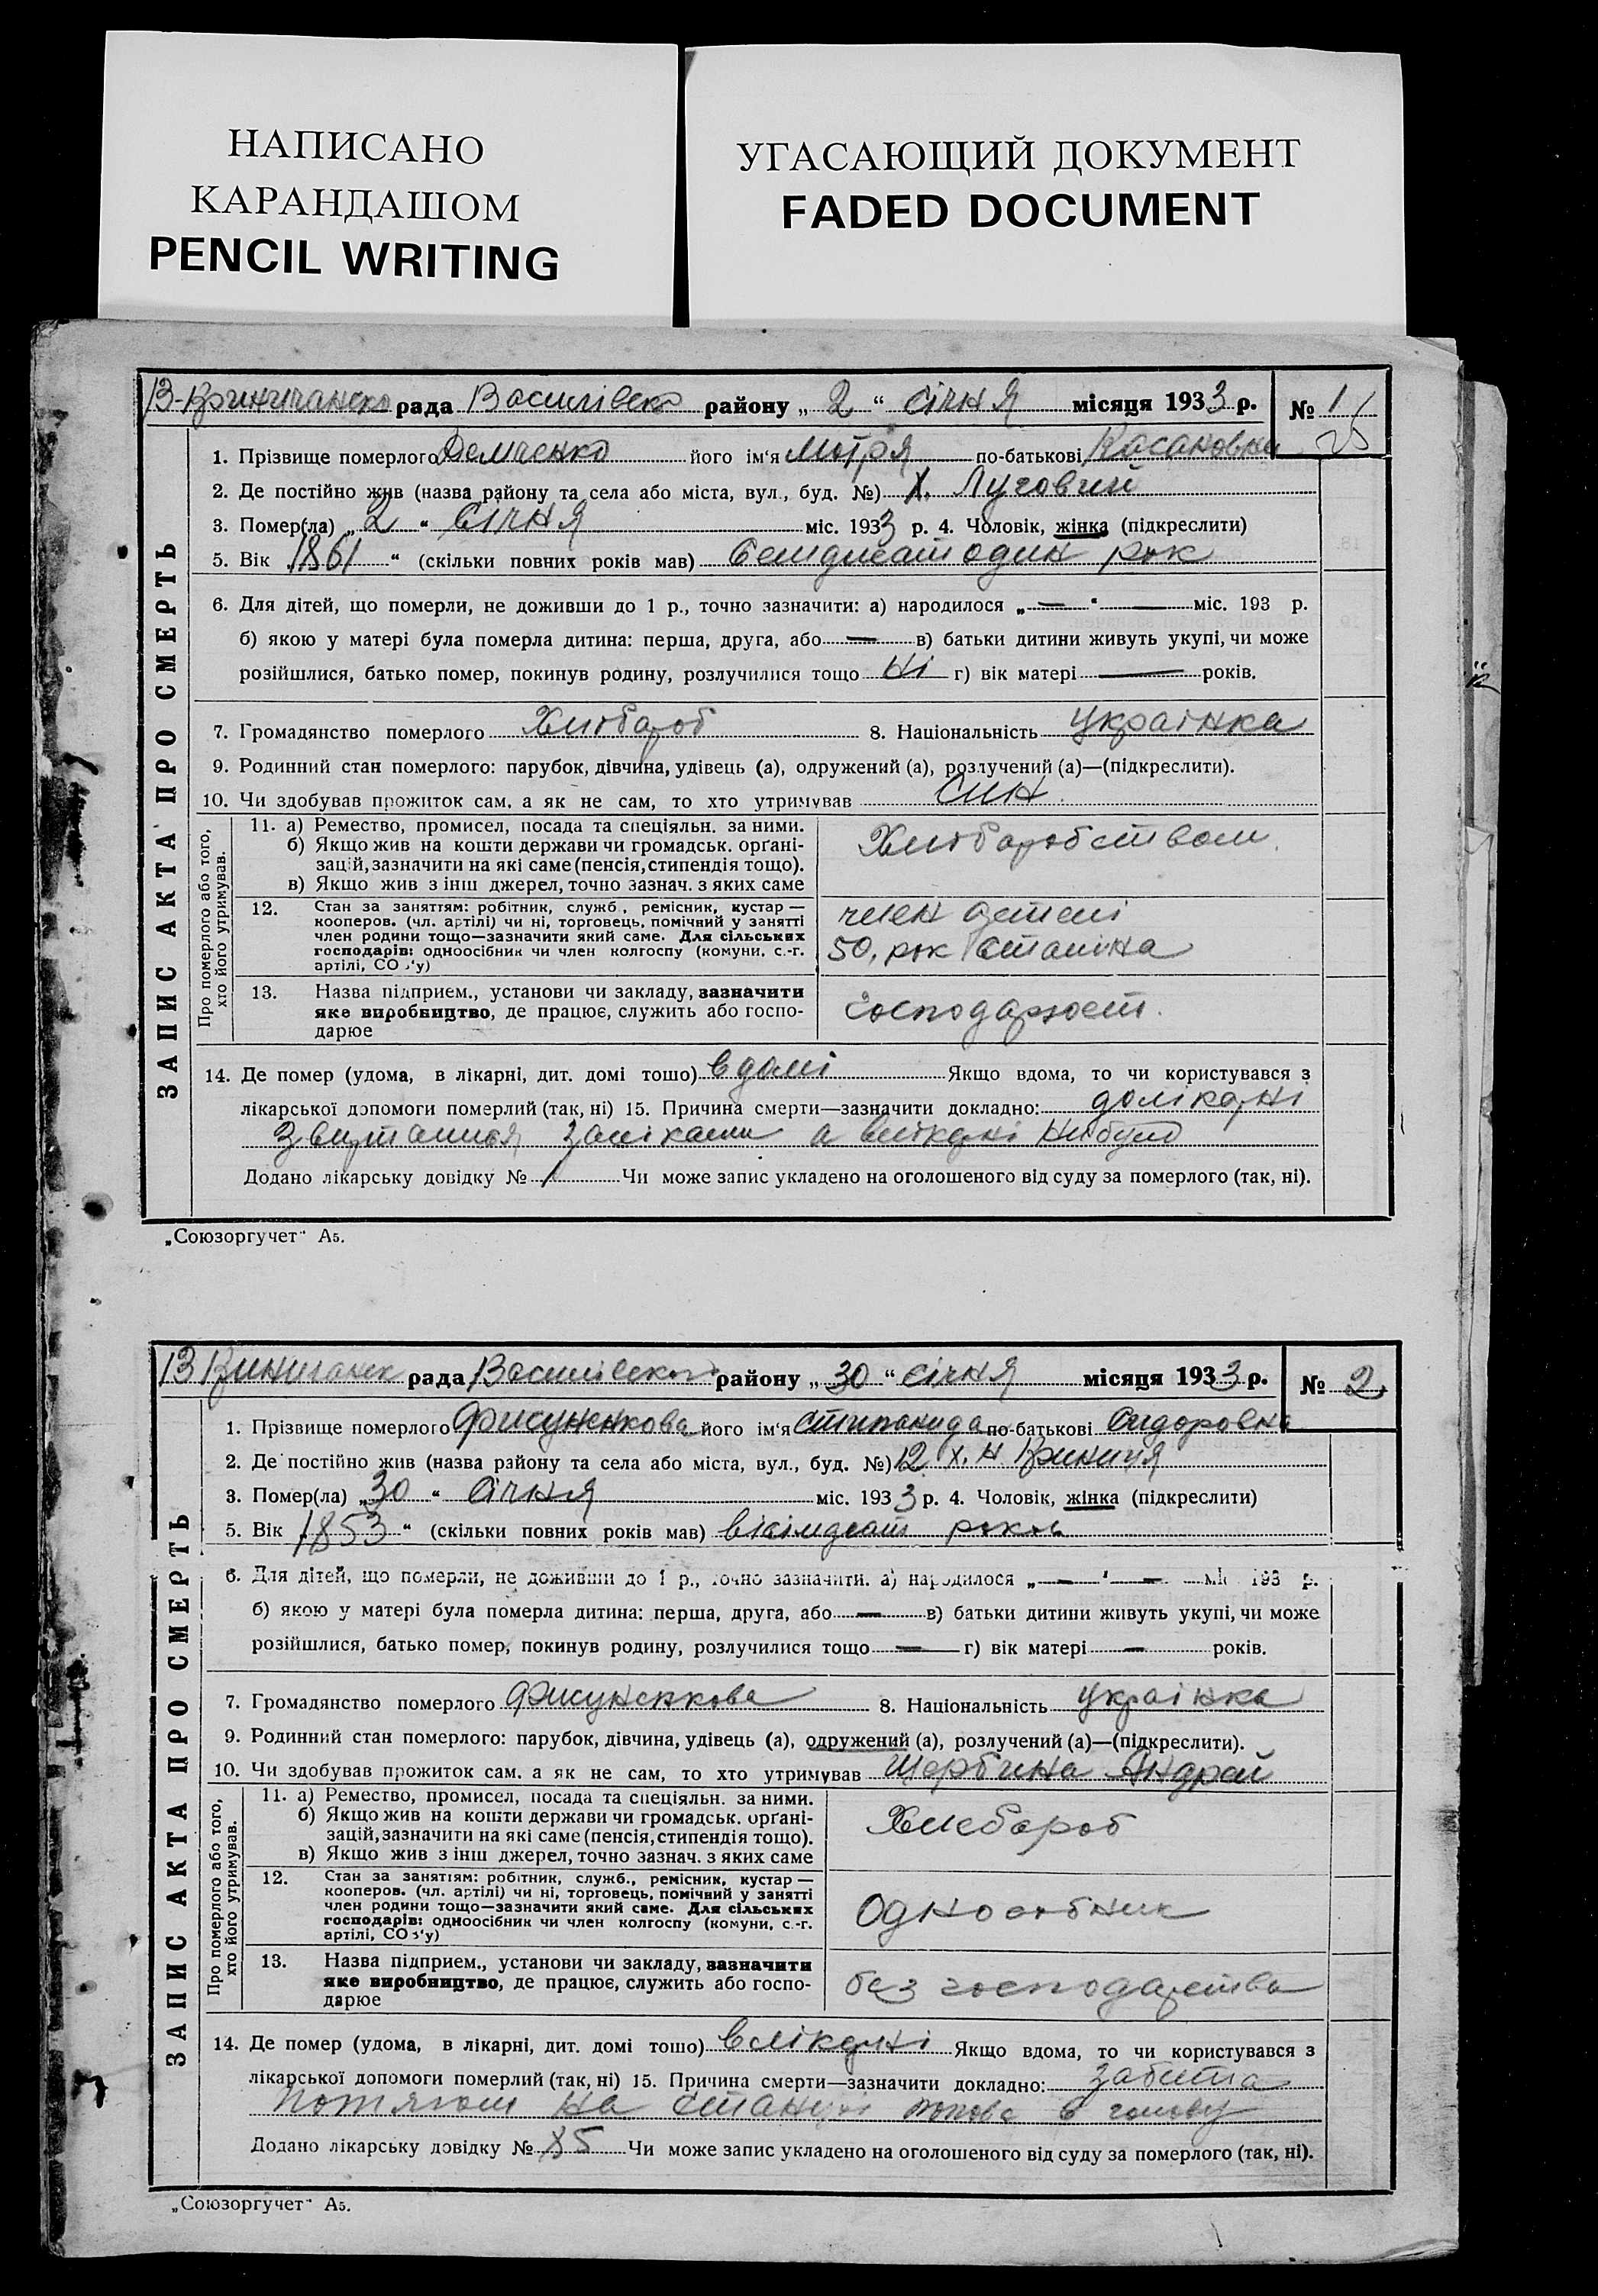 НАПИСАНО
КАРАНДАШОМ
PENCIL WRITING
УГАСАЮЩИЙ ДОКУМЕНТ
FADED DOCUMENT
ЗАПИС АКТА ПРО СМЕРТЬ
рада району „ 2 “ січня місяця 1933 р. № 1
1. Прізвище померлого Демченко його ім'я Мотря по-батькові
2. Де постійно жив (назва району та села або міста, вул., буд. №) х. Луговий
3. Помер(ла) „ 2 “ Січня міс. 1933 р. 4. Чоловік, жінка (підкреслити)
5. Вік „ 1861 “ (скільки повних років мав) Семдисат один рок
6. Для дітей, що померли, не доживши до 1 р., точно зазначити: а) народилося „ — “ — міс. 193 р.
б) якою у матері була померла дитина: перша, друга, або — в) батьки дитини живуть укупі, чи може
розійшлися, батько помер, покинув родину, розлучилися тощо ні г) вік матері — років.
7. Громадянство померлого Хлібароб 8. Національність українка
9. Родинний стан померлого: парубок, дівчина, удівець (а), одружений (а), розлучений (а)—(підкреслити).
10. Чи здобував прожиток сам, а як не сам, то хто утримував Син
Про померлого або того,
хто його утримував.
11. а) Ремество, промисел, посада та спеціяльн. за ними.
б) Якщо жив на кошти держави чи громадськ. орґані-
зацій, зазначити на які саме (пенсія, стипендія тощо).
в) Якщо жив з інш джерел, точно зазнач. з яких саме
Хлібаробством
12. Стан за заняттям: робітник, служб., ремісник, кустар —
кооперов. (чл. артілі) чи ні, торговець, помічний у занятті
член родини тощо—зазначити який саме. Для сільських
господарів: одноосібник чи член колгоспу (комуни, с.-г.
артілі, СО у)
член артелі
50, рок Сталіна
13. Назва підприєм., установи чи закладу, зазначити
яке виробництво, де працює, служить або госпо-
дарює
14. Де помер (удома, в лікарні, дит. домі тошо) вдомі Якщо вдома, то чи користувався з
лікарської допомоги померлий (так, ні) 15. Причина смерти—зазначити докладно: долікарні
а влікарні небуло
Додано лікарську довідку № / Чи може запис укладено на оголошеного від суду за померлого (так, ні).
„Союзоргучет“ А5.
ЗАПИС АКТА ПРО СМЕРТЬ
рада району „ 30 “ січня місяця 1933 р. № 2
1. Прізвище померлого Фисуненкова його ім'я Стипанида по-батькові Сидоровна
2. Де постійно жив (назва району та села або міста, вул., буд. №) х. Н Криниця
3. Помер(ла) „ 30 “ Січня міс. 1933 р. 4. Чоловік, жінка (підкреслити)
5. Вік „ 1853 “ (скільки повних років мав) вісімдесат роков
6. Для дітей, що померли, не доживши до 1 р., точно зазначити. а) народилося „ — “ — міс 193 р.
б) якою у матері була померла дитина: перша, друга, або — в) батьки дитини живуть укупі, чи може
розійшлися, батько помер, покинув родину, розлучилися тощо — г) вік матері — років.
7. Громадянство померлого Фисуненкова 8. Національність українка
9. Родинний стан померлого: парубок, дівчина, удівець (а), одружений (а), розлучений (а)—(підкреслити).
10. Чи здобував прожиток сам. а як не сам, то хто утримував Щербина Андрей
Про померлого або того,
хто його утримував.
11. а) Ремество, промисел, посада та спеціяльн. за ними.
б) Якщо жив на кошти держави чи громадськ. орґані-
зацій, зазначити на які саме (пенсія, стипендія тощо).
в) Якщо жив з інш джерел, точно зазнач. з яких саме
Хлебароб
12. Стан за заняттям: робітник, служб., ремісник, кустар —
кооперов. (чл. артілі) чи ні, торговець, помічний у занятті
член родини тощо—зазначити який саме. Для сільських
господарів: одноосібник чи член колгоспу (комуни, с.-г.
артілі, СО з'у)
Односібник
13. Назва підприєм., установи чи закладу, зазначити
яке виробництво, де працює, служить або госпо-
дарює
без господарства
14. Де помер (удома, в лікарні, дит. домі тошо) влікарні Якщо вдома, то чи користувався з
лікарської допомоги померлий (так, ні) 15. Причина смерти—зазначити докладно: забита
потягом на станції попове в голову
Додано лікарську довідку № Чи може запис укладено на оголошеного від суду за померлого (так, ні).
„Союзоргучет“ А5.